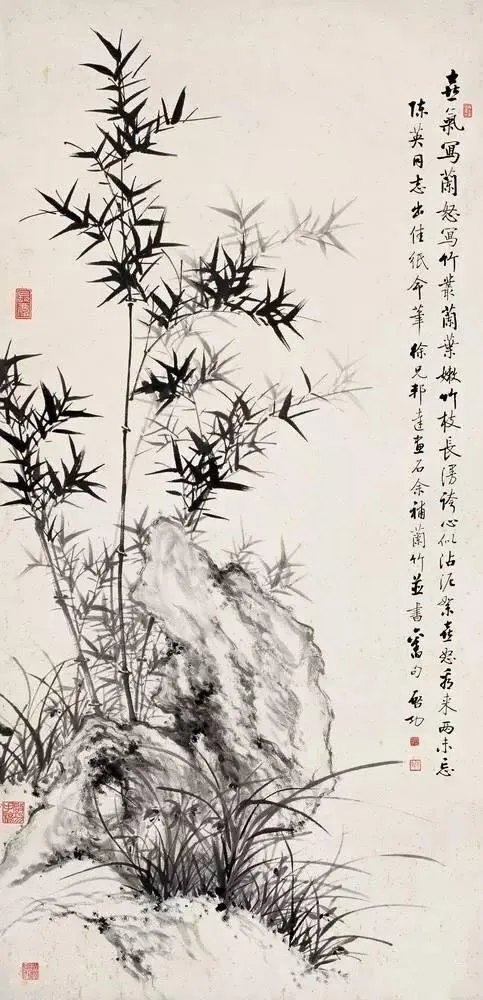 喜氣寫蘭怒寫竹叢蘭葉嫩竹枝長漫誇心似沾泥絮喜怒看來兩未忘
陳英同志出佳紙命筆徐兄邦達畫石余補蘭竹並書舊句 啟功